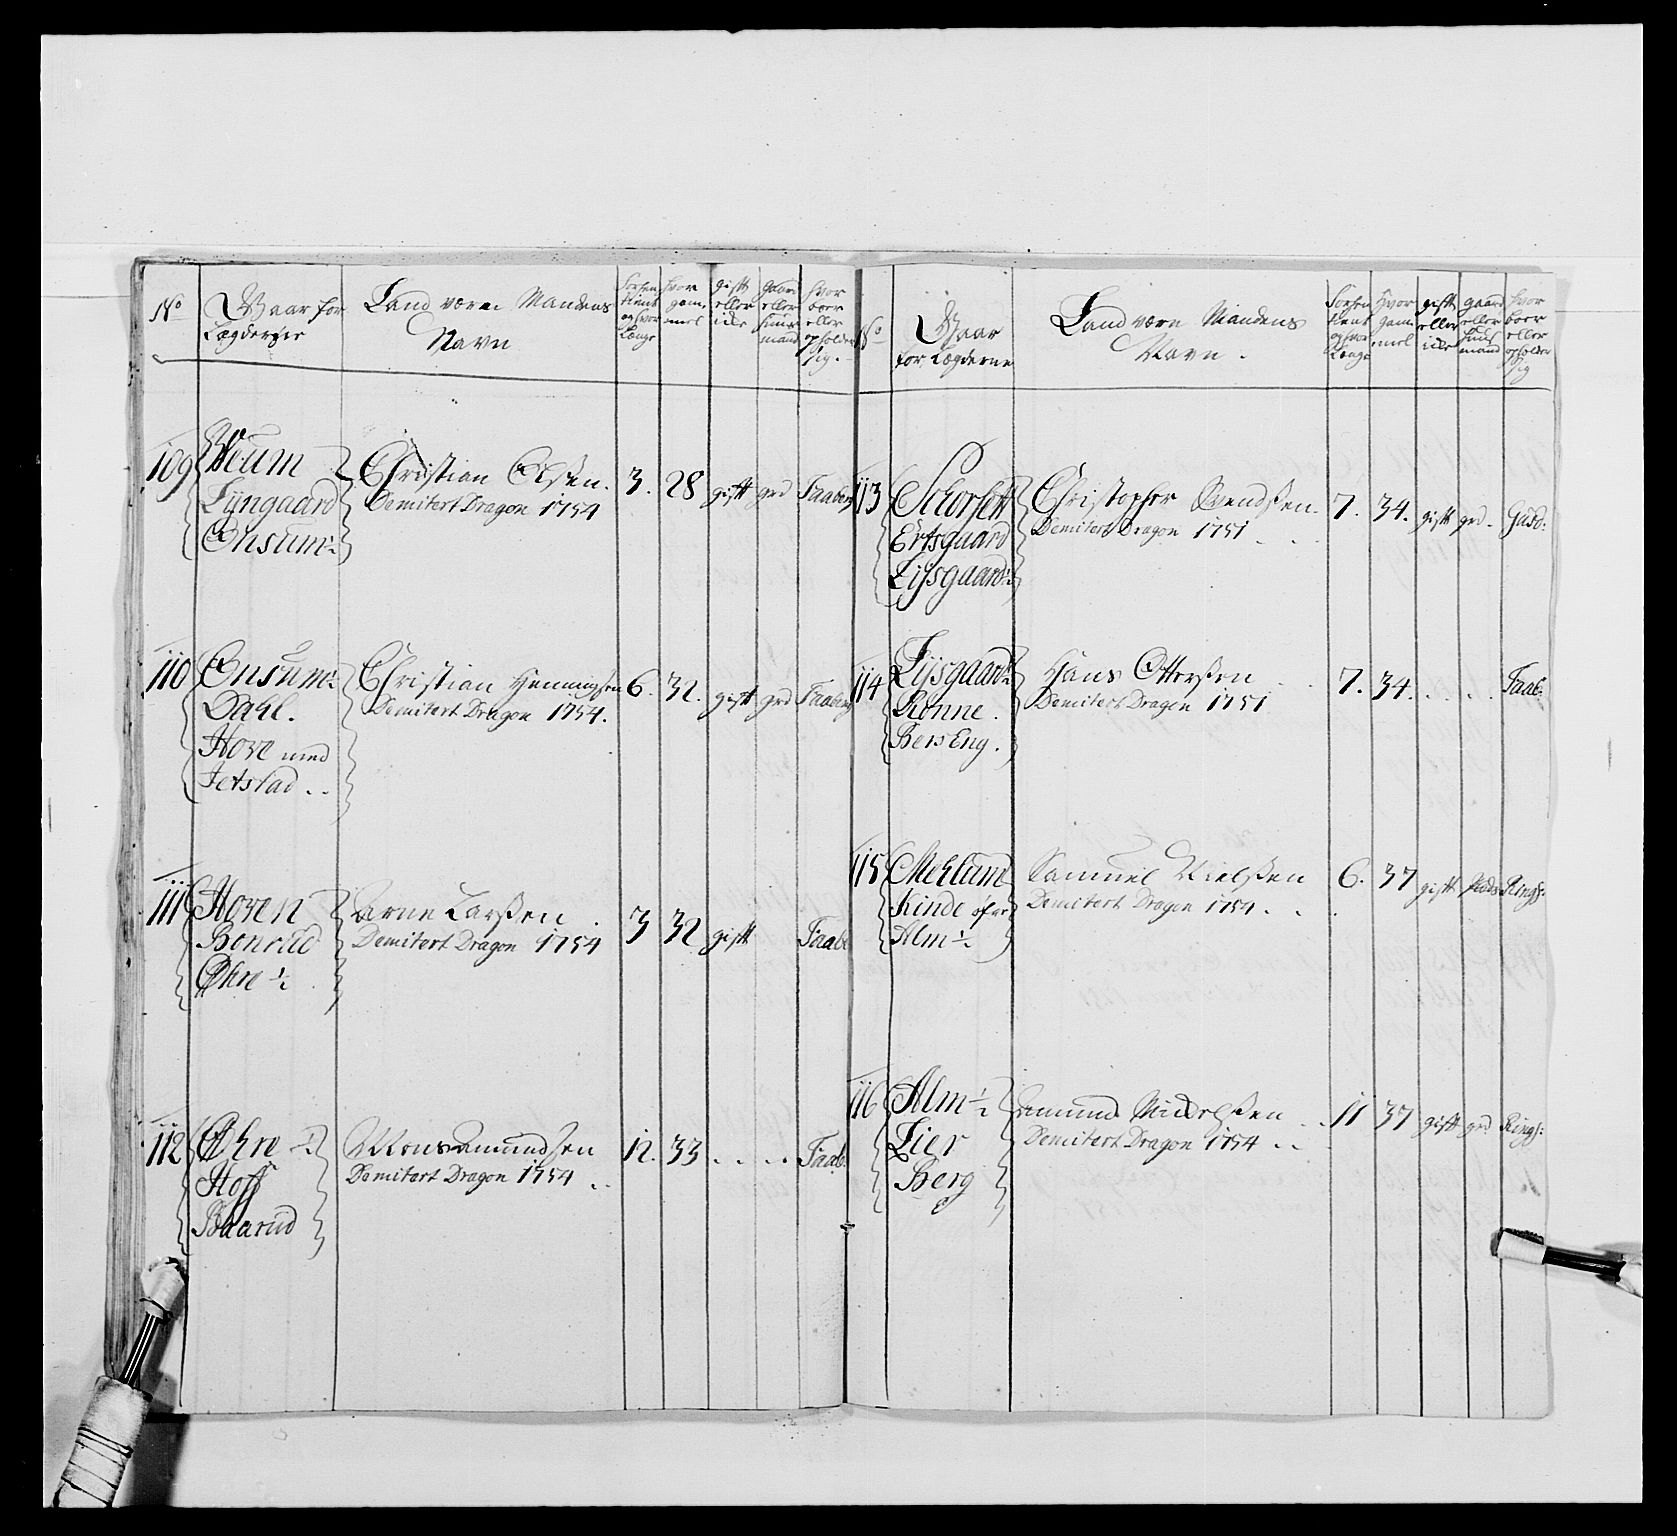 No
Gaar for
Lægderne
Land værn Mandens
Navn
For hen
tient
og hvor
Længe
hvor
gam̄
mel
gift
eller
icke
gaard
eller
huus
mand
hvor
boer
eller
opholder
sig.
109
Weum
Lyngaard
Onsum ½
Christian Olsen.
Demitert Dragon 1754
3.
28
gift
grd
Faaberg
110
Onsum ½
Dahl.
Hove med
Jetstad ..
Christian Hemingsen
Demitert Dragon 1754.
6.
32.
gift
grd
Faaberg
111
Hoven
Benrud
Øhre ½
Arne Larsen
Demitert Dragon 1754
3
32
gift
Faab:
112
Øhre ½
Hoff
Baarud
Mons Amundsen
Demitert Dragon 1754 ..
12.
33
. . . .
Faab:
No
Gaar
for Lægderne
Land værn Mandens
Navn.
For hen
tient
og hvor
Længe
Hvor
gam̄
mel
gift
eller
icke
gaard
eller
huus
mand
hvor
boer
eller
opholder
sig
113
Ertsgaard
Lijsgaard ½
Christopher Svendsen.
Demitert Dragon 1751 . .
7.
34.
gift
grd.
Gusd:
114
Lijsgaard ½
Rønne.
Bers Eng.
Hans Ottersen . .
Demitert Dragon 1751
7.
34.
. . . .
Faab:
115
Mehlum
Kinde ofre
Alm ½
Samuel Nielsen
Demitert Dragon 1754 . .
6.
37
gift
Rings:
116
Alm ½
Lier
Berg
Amund Mickelsen ..
Demitert Dragon 1754 ..
11
37
gift
grd
Rings: